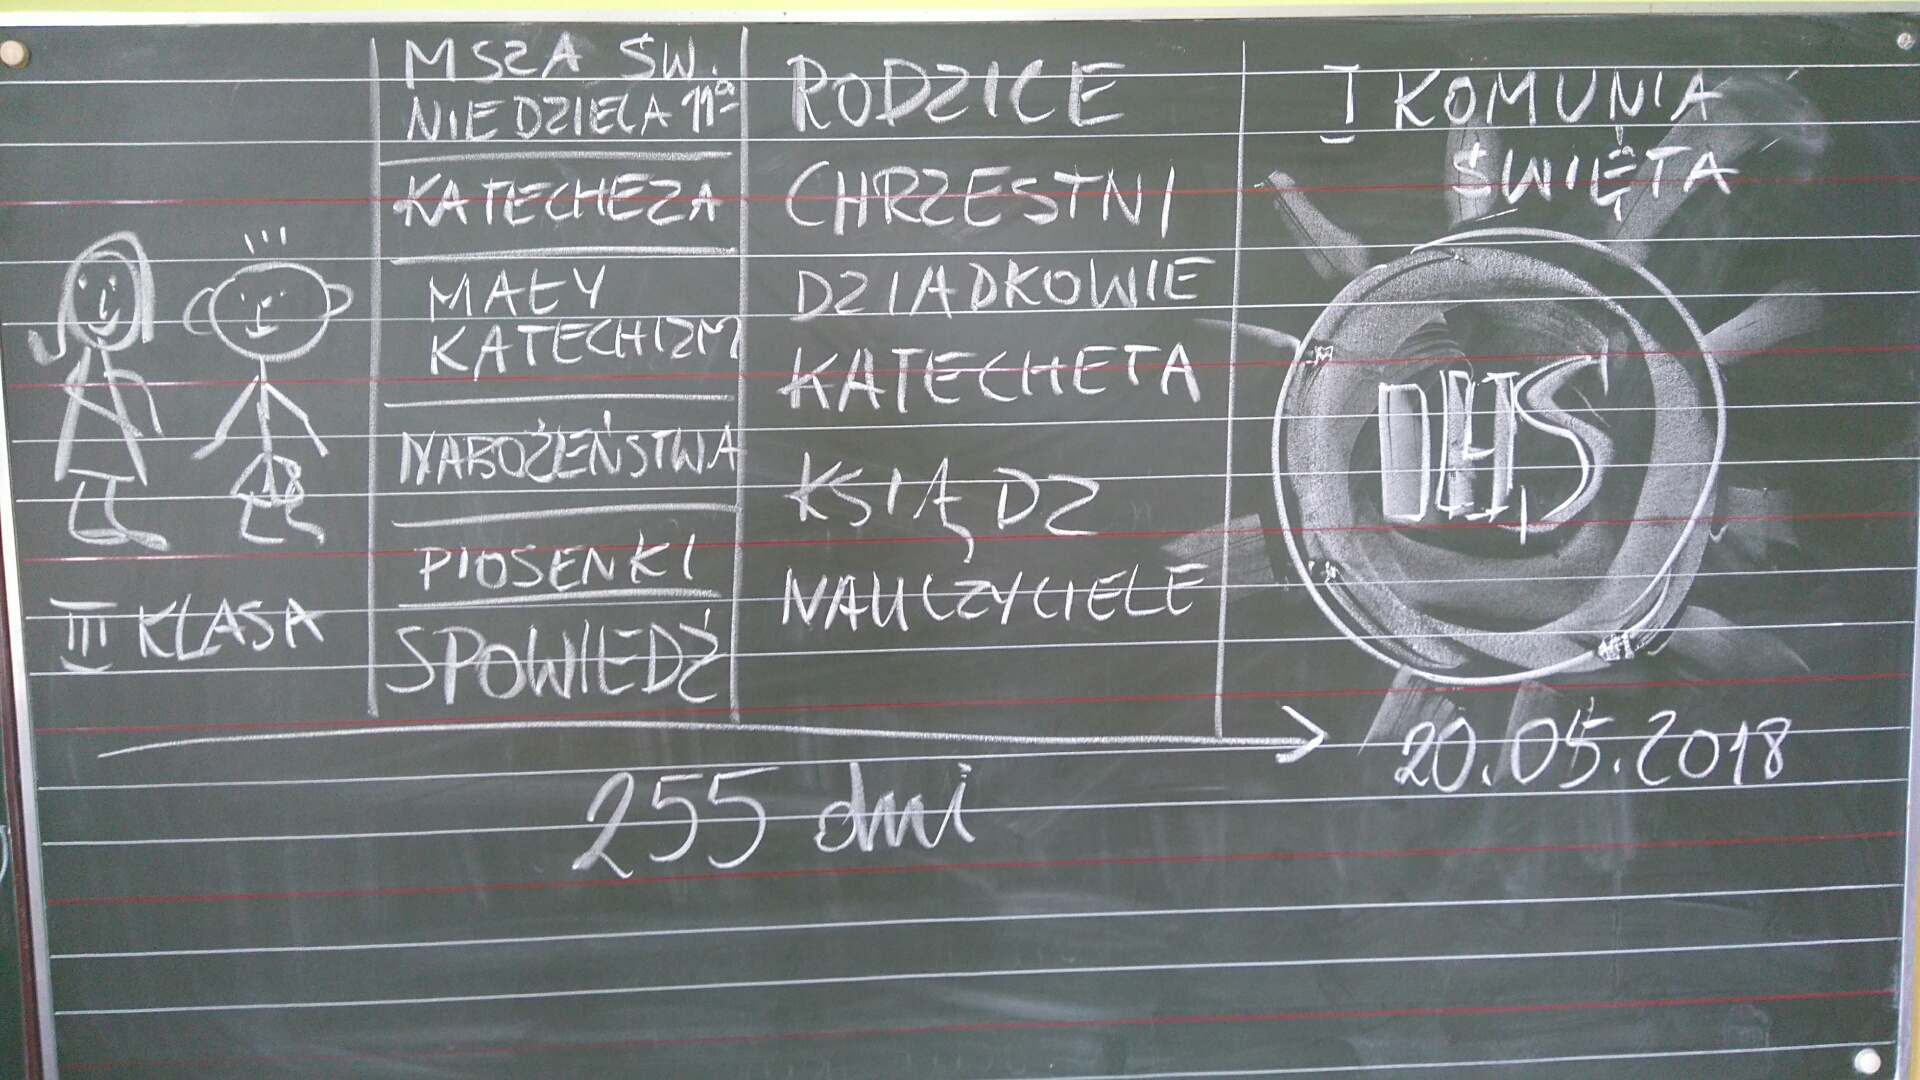 MSZA ŚW.
NIEDZIELA 11ºº
KATECHEZA
MAŁY
KATECHIZM
NABOŻEŃSTWA
PIOSENKI
SPOWIEDŹ
RODZICE
CHRZESTNI
DZIADKOWIE
KATECHETA
KSIĄDZ
NAUCZYCIELE
I KOMUNIA
ŚWIĘTA
III KLASA
20.05.2018
255 dni